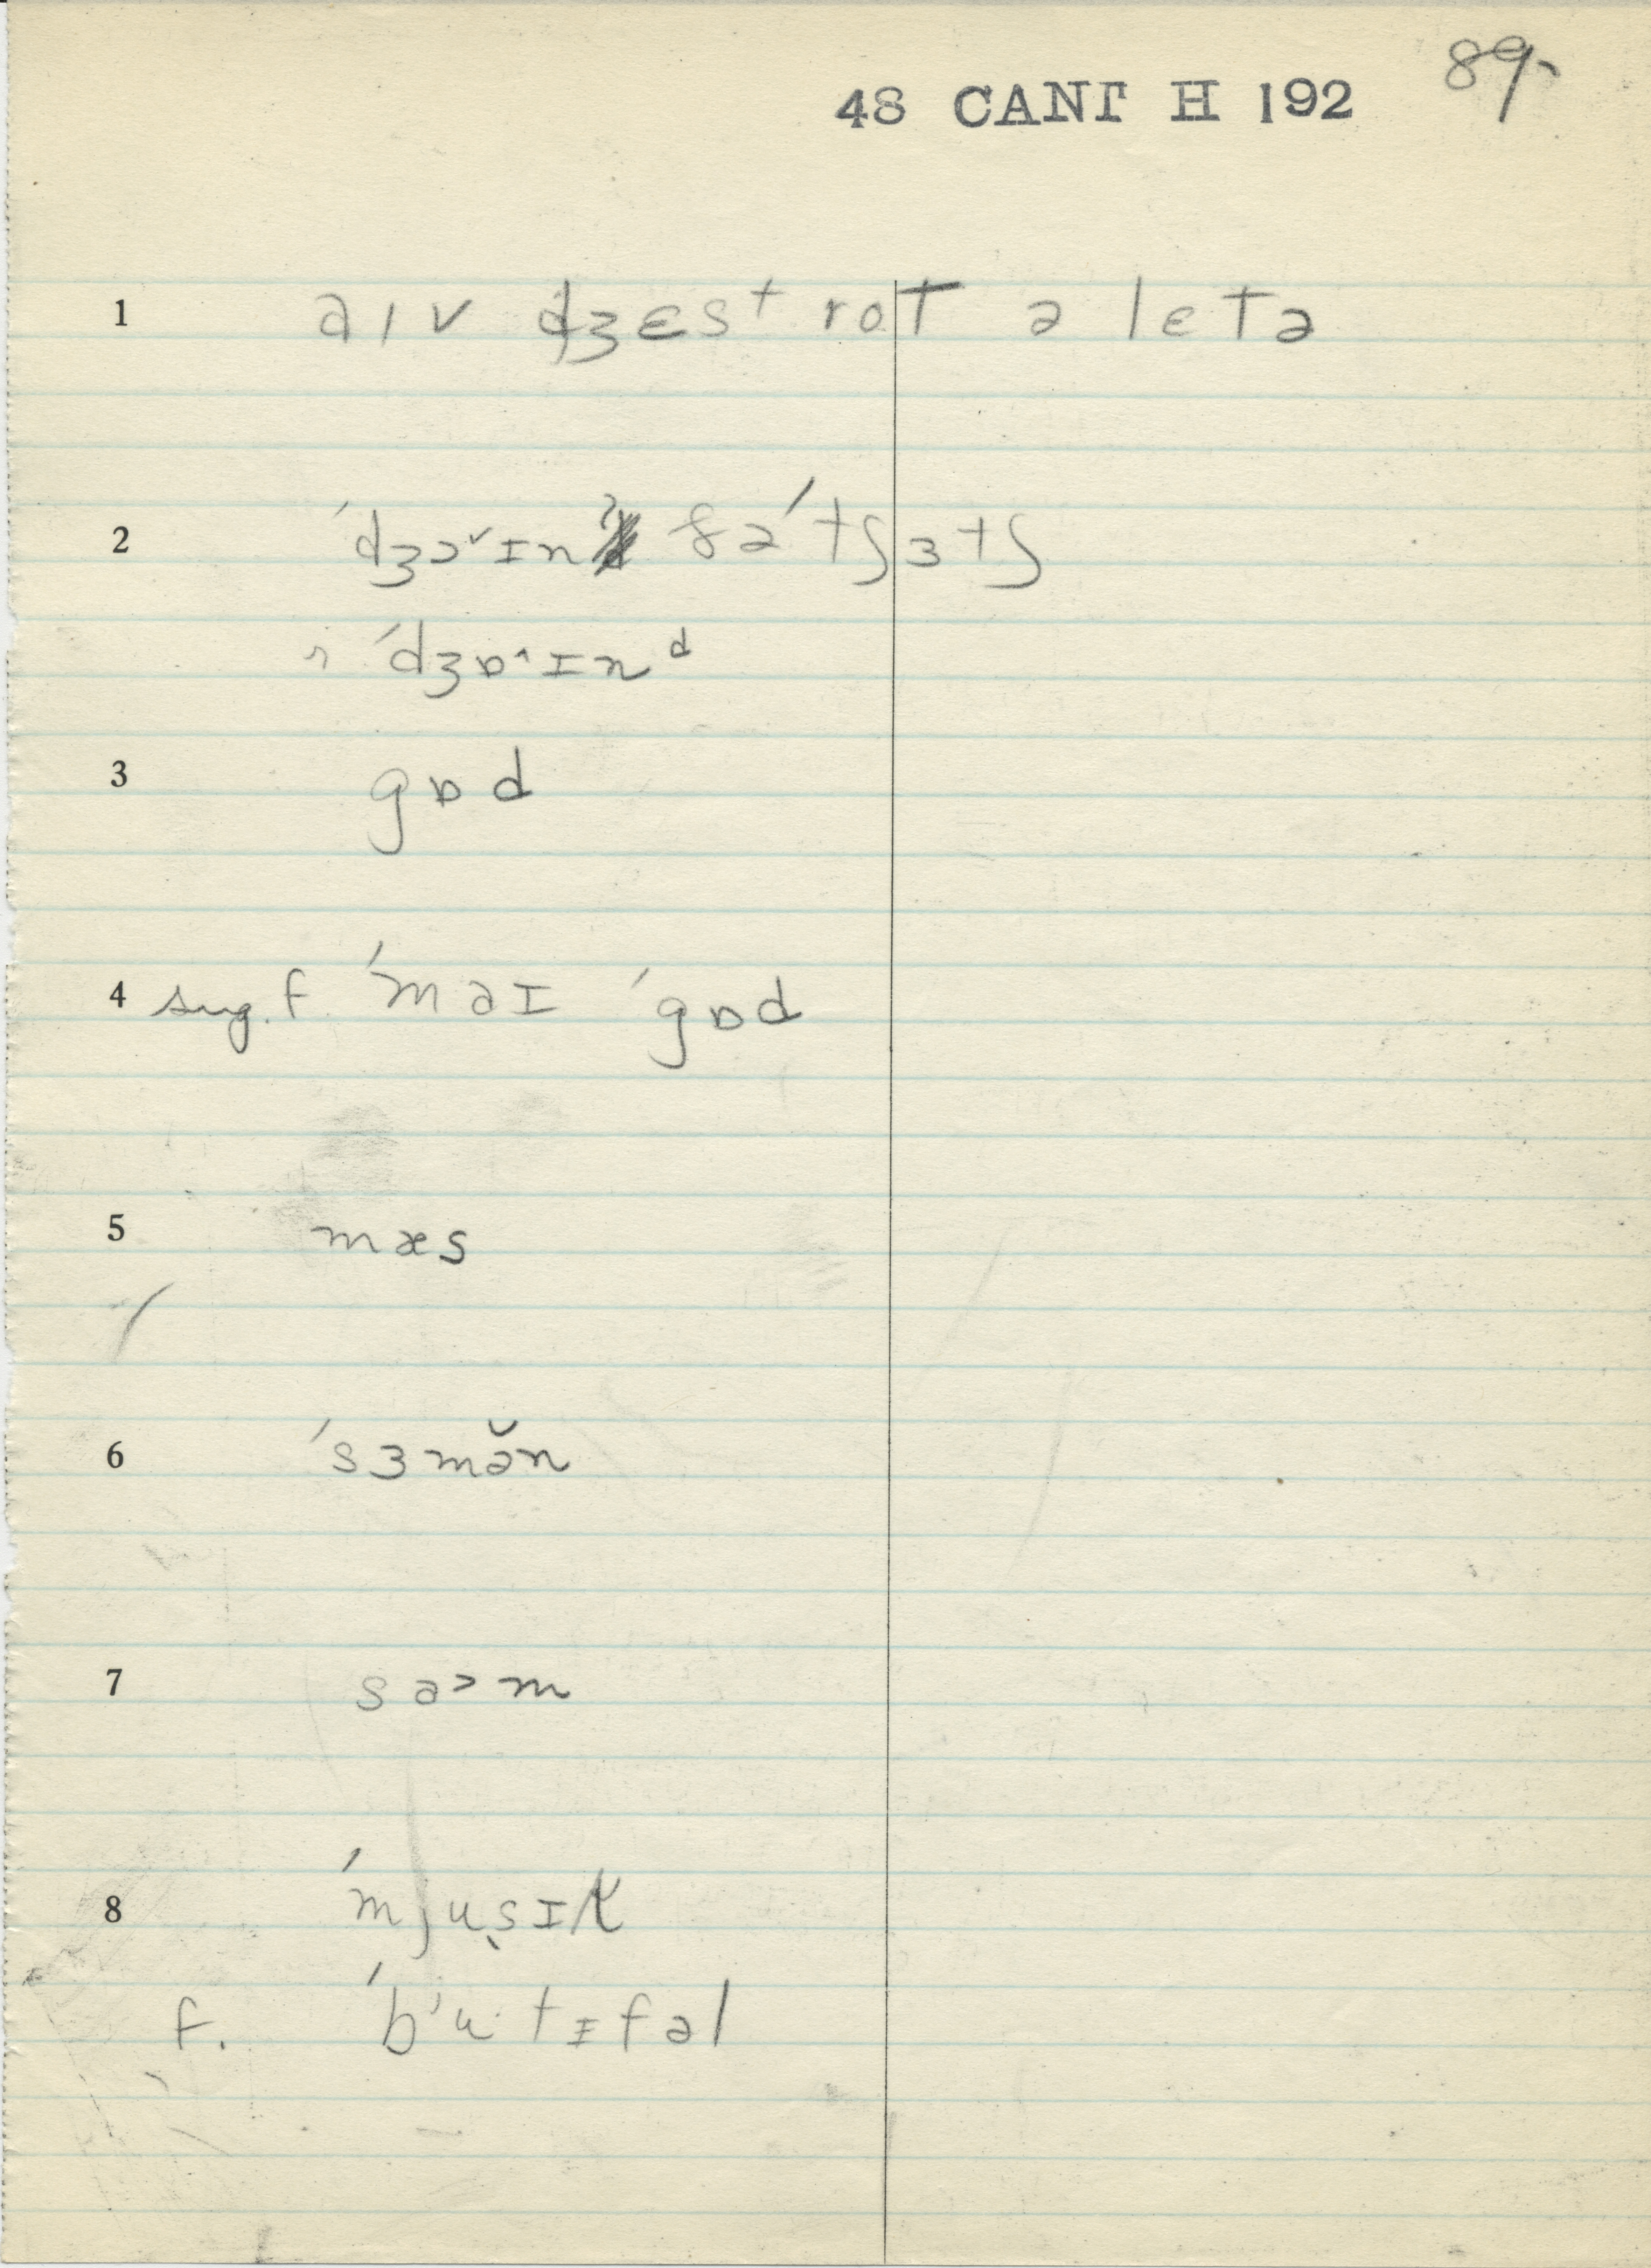 89.
48 CANT H 192
1 aıv dʒɛst rot ə lɛtə
2 ˈdʒɔ˅ɪn ðəˈtʃɜtʃ
ˈdʒɒ˄ɪnᵈ
3 gɒd
4 sug. f. ˈmaɪ ˈgɒd
5 mæs
6 ˈsɜmə̆n
7 sa˃m
8 ˈmjusɪk
f. ˈbʲutɪfəl